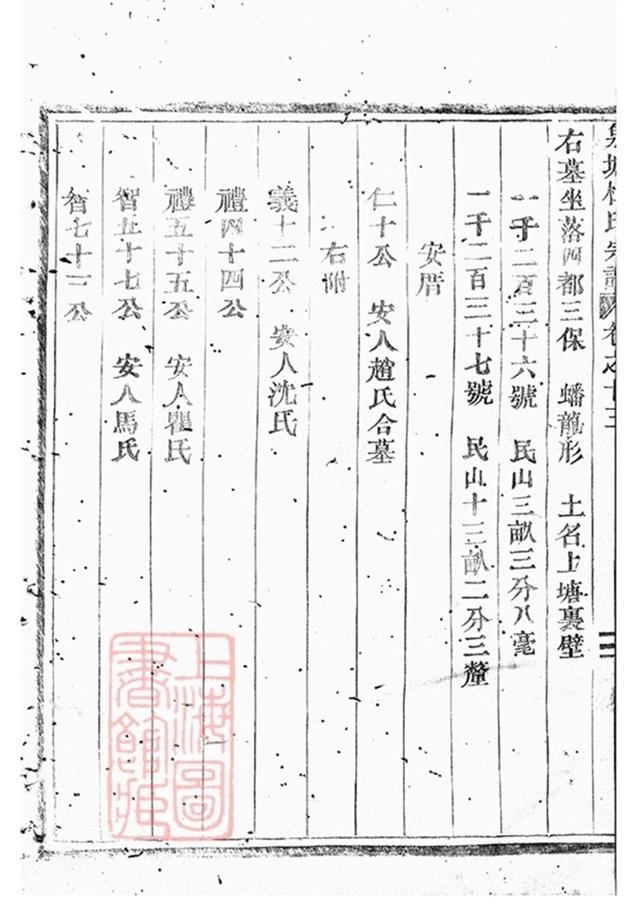 氏宗譜 卷之十三
右墓坐落四都三保 蟠龍形 土名上塘裏壁
一千二百三十六號 民山三畝三分八毫
一千二百三十七號 民山十三畝二分三釐
安厝
仁十公 安人趙氏合墓
右附
義十二公 安人沈氏
禮四十四公
禮五十五公 安人瞿氏
智五十七公 安人馬氏
智七十一公
上海圖書館藏